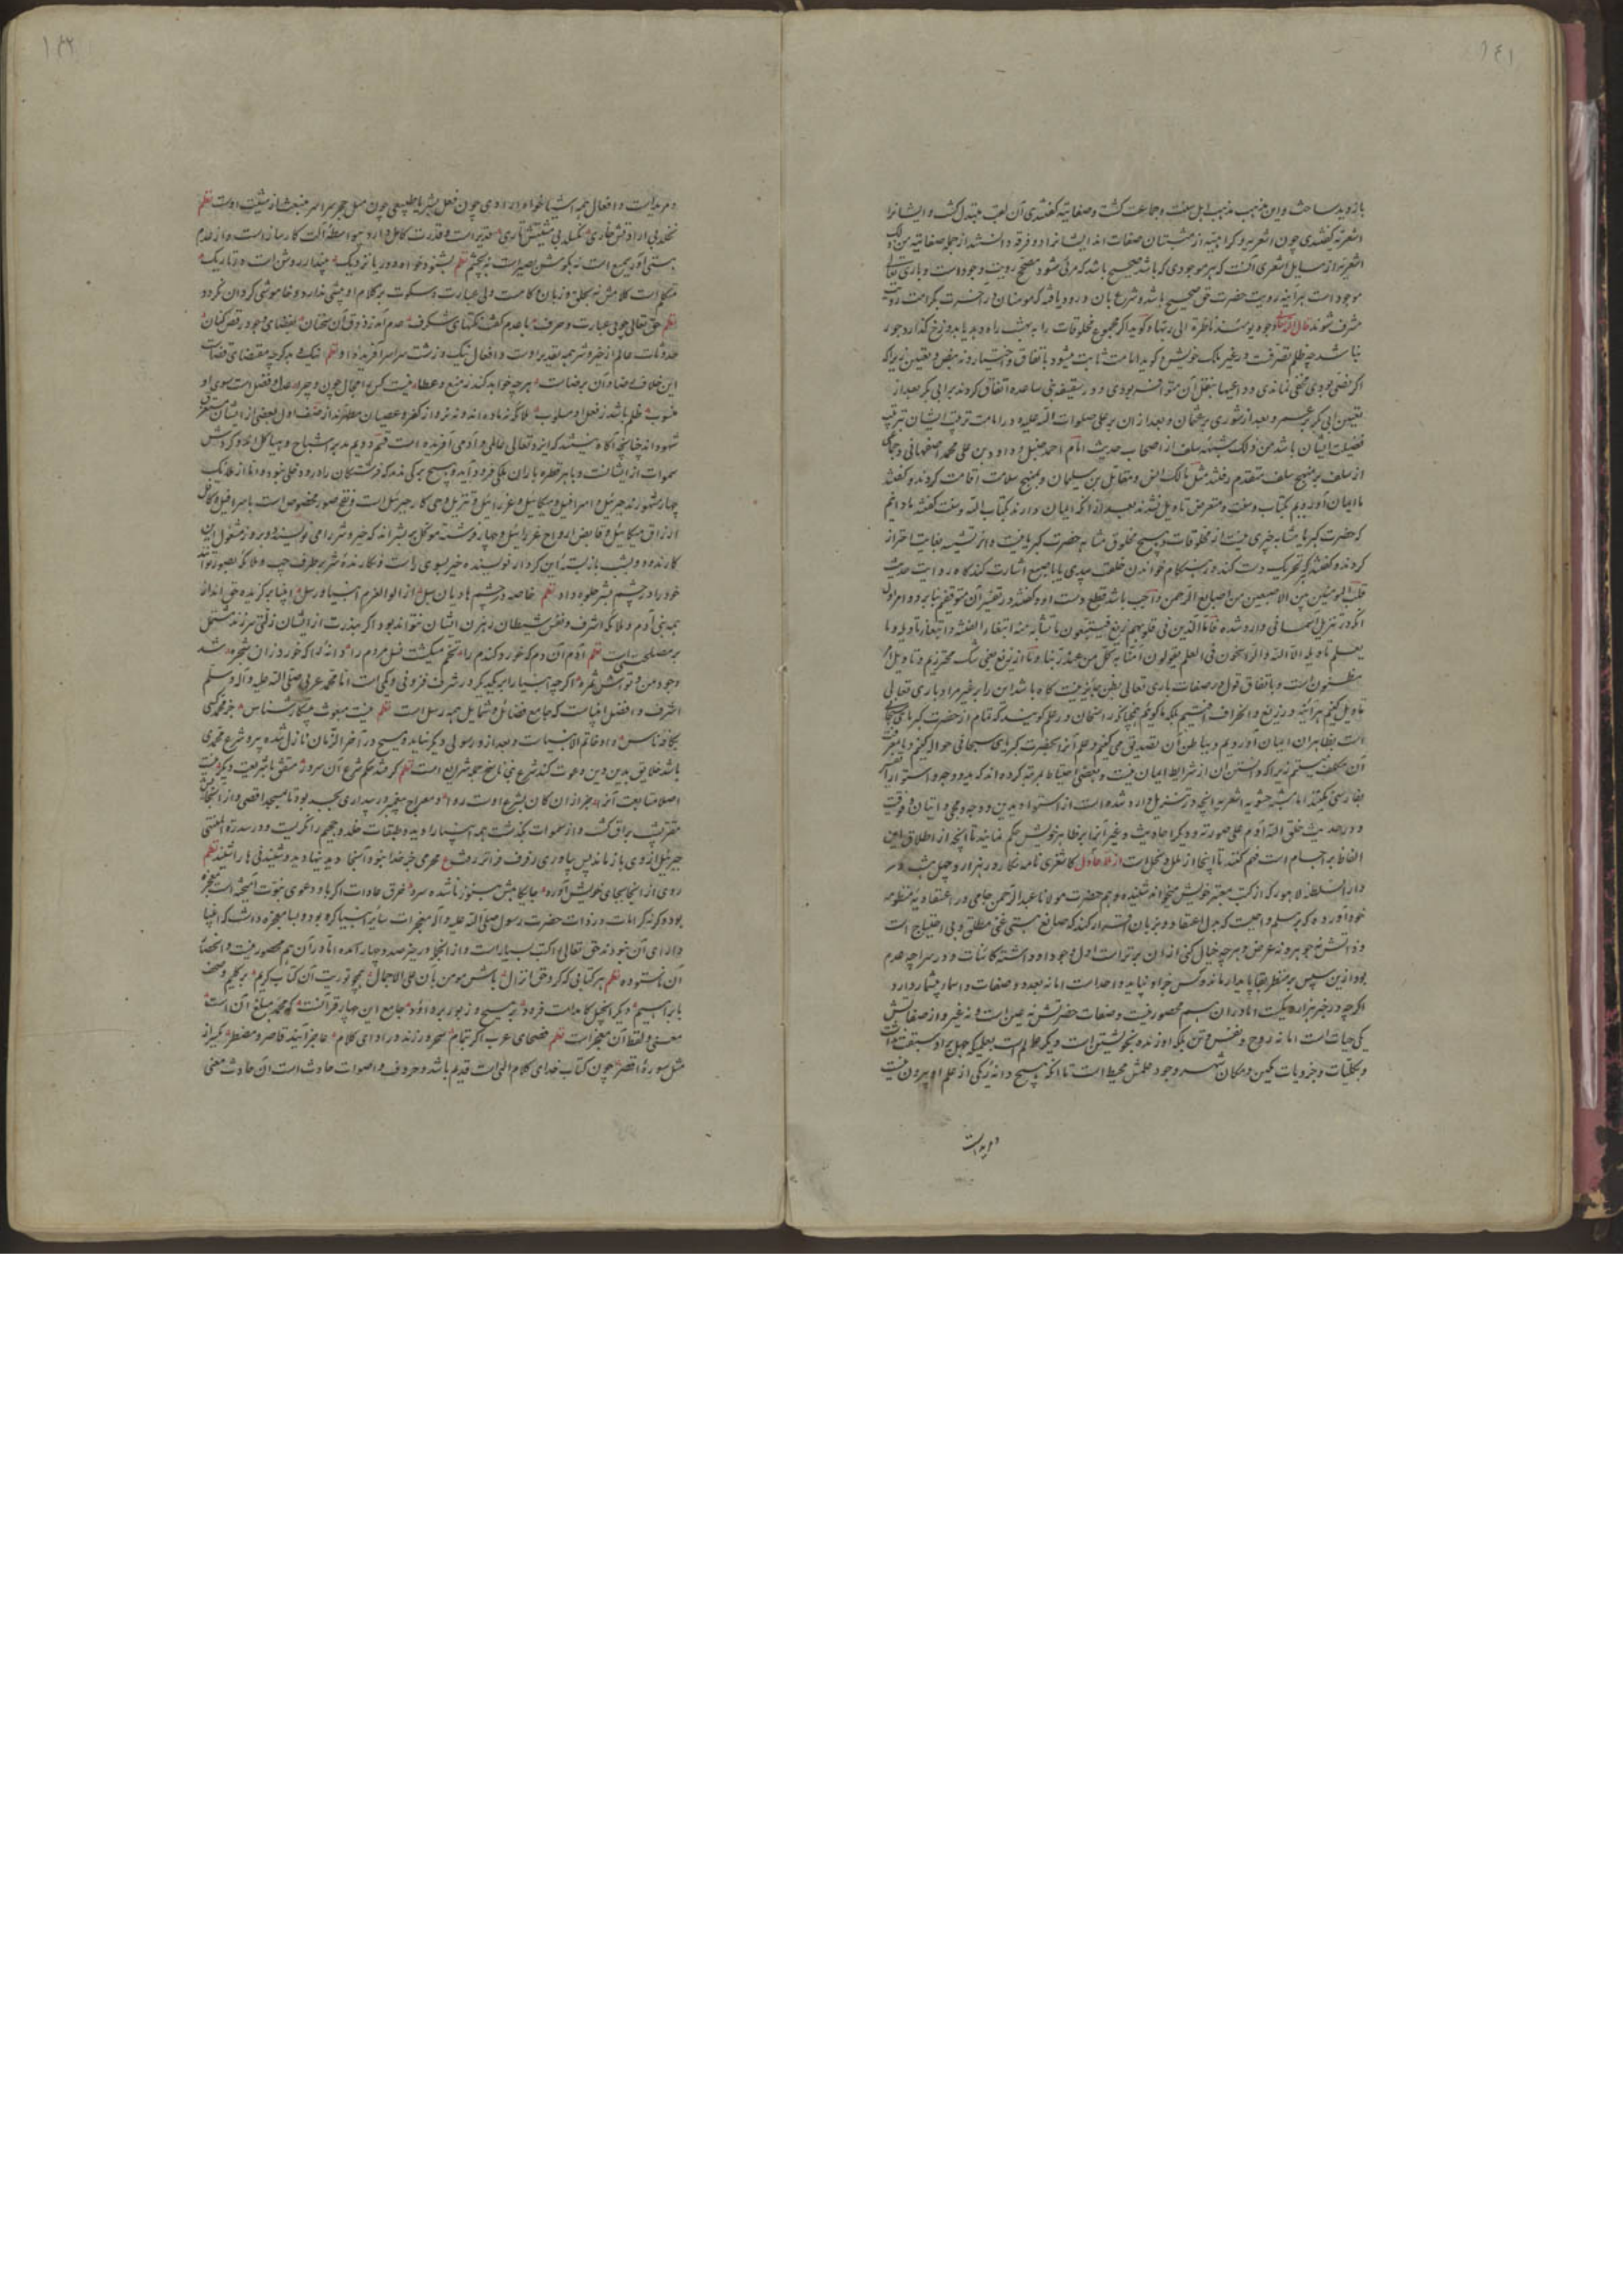 ۱۴۱
بازوید ساخت و این مذهب مذهب اهل سنت و جماعت گشت و صفاتیه گفتندی آن لقب مبتدل گشت و ایشانرا
اشعریه گفتندی چون اشعریه و کرامیه از مثبتان صفات اند ایشانرا دو فرقه دانستند از جمله صفاتیه من ذلک
اشعریه از مسایل اشعری آنست که هر موجودی که باشد صحیح باشد که مرئی شود مصحح رویت وجود است و باری تعالی
موجود است هرآینه رویت حضرت حق صحیح باشد و شرع بآن ورود یافته که مومنان در آخرت بکرامت رویت
مشرف شوند قال الله تعالی وجوه یومئذ ناظرة الی ربها و گوید اگر مجموع مخلوقات را به بهشت راه دهد یا بدوزخ گذارد جور
نباشد چه ظلم تصرفست در غیر ملک خویش و گوید امامت ثابت میشود باتفاق و اختیار و نه بنص و تعیین زیراکه
اگر نصی بودی مخفی نماندی و دواعی بنقل آن متوافر بودی و در سقیفه بنی ساعده اتفاق کردند بر ابی بکر بعد از
تعیین ابی بکر بر عمر و بعد از شوری بر عثمان و بعد از ان بر علی صلوات الله علیه و در امامت ترتیب ایشان بترتیب
فضیلت ایشان باشد من ذلک مشبهه سلف از اصحاب حدیث امام احمد حنبل و داود بن علی محمد اصفهانی و جماعتی
از سلف بر منهج سلف متقدم رفتند مثل مالک انس و مقاتل بن سلیمان و بمنهج سلامت اقامت کردند و گفتند
ما ایمان آوردیم بکتاب و سنت و متعرض تاویل نشدند بعد از آنکه ایمان دارند بکتاب الله و سنت گفتند ما دانیم
که حضرت کبریا مشابه چیزی نیست از مخلوقات و هیچ مخلوق مشابه حضرت کبریا نیست و از تشبیه بغایت احتراز
کردند و گفتند که تحریک دست کند در هنگام خواندن خلقت بیدی یا باصبع اشارت کند گاه روایت حدیث
قلب المومنین بین الاصبعین من اصابع الرحمن واجب باشد قطع دست او و گفتند در تفسیر آن متوقفیم بنا بر دو امر اول
آنکه در تنزیل آسمانی وارد شده فاما الذین فی قلوبهم زیغ فیتبعون ما تشابه منه ابتغاء الفتنة و ابتغاء تاویله و ما
یعلم تاویله الا الله والراسخون فی العلم یقولون آمنا به کل من عند ربنا و ما از زیغ یعنی شک محترزیم و تاویل امر
مظنون است و باتفاق قول در صفات باری تعالی بظن جایز نیست گاه باشد این را بر غیر مراد باری تعالی
تاویل کنیم هرآینه در زیغ و انحراف افتیم بلکه ما گوییم همچنانکه راسخان در علم گویند که تمام از حضرت کبریای سبحانی
است بظاهر آن ایمان آوردیم و بباطن آن تصدیق می کنیم و علم آنرا بحضرت کبریای سبحانی حواله کنیم و بمعرفت
آن مکلف نیستیم زیرا که دانستن آن از شرایط ایمان نیست و بعضی احتیاط بمرتبه کرده اند که ید و وجه و استوا را
بفارسی نگفتند اما مشبه حشویه اشعریه آنچه در تنزیل وارد شده است از استوا و یدین و وجه و مجی و اتیان و فوقیت
و در حدیث خلق الله آدم علی صورته و دیگر احادیث و غیر آنرا بر ظاهر خویش حکم نمایند تا آنچه از اطلاق این
الفاظ بر اجسام است فهم کنند تا اینجا از ملل و نحل است از ملا عادل کاشغری نامه نگار در هزار و چهل هشت در
دار السلطنه لاهور که از کتب معتبر خویش میخواند شنیده و هم حضرت مولانا عبدالرحمن جامی در اعتقادیه منظومه
خود آورده که بر مسلم واجبست که بدل اعتقاد و بزبان اقرار کند که صانع هستی غنی مطلق و بی احتیاج است
و ذاتش نه جوهر و نه عرض و هرچه خیال کنی از ان برتر است اول وجود او داشته کائنات در سراچه عدم
بود ازین سپس بر منظر بقا پایدار ماند و کس جز او نپاید و احد است اما نه بعدد و صفات و اسما بیشمار دارد
اگرچه در خبر هزار و یکست اما در آن هم محصور نیست و صفات حضرتش نه عین است و نه غیر و از صفاتش
یکی حیات است اما نه بروح و نفس و تن بلکه او زنده بخویشتن است و دیگر علم است بعلمیکه جهل بر او سبقت نداشت
و بکلیات و جزویات یکسان و مکان شهر وجود علمش محیط است تا آنکه هیچ دانه ریگی از علم او بیرون نیست
و مرید است
۱۴۲
و مرید است و افعال همه اشیا خواه ارادی چون فعل بشر یا طبیعی چون میل حجر سراسر منبعث از مشیت اوست نظم
نخلد بی ارادتش خاری نگسلد بی مشیتش تاری قدیر است و قدرت کامل دارد بیواسطه آلت کارساز است و از عدم
هستی آورد سمیع است نه بگوش بصیر است نه بچشم نظم بشنود خواه دور یا نزدیک بیند ار روشن است و تاریک
متکلم است کلامش نه بحلق و زبان و کام است ولی عبارت و سکوت بر کلام او پیشی ندارد و خاموشی گرد آن نگردد
نظم حق تعالی چو بی عبارت و حرف با عدم گفت نکتهای شگرف عدم آمد ز ذوق آن سخنان بفضای وجود رقص کنان
حدوثات عالم از خیر و شر همه بتقدیر اوست و افعال نیک و زشت سراسر آفریده او نظم نیک و بد گرچه مقتضای قضاست
این خلاف رضا و آن برضاست هرچه خواهد کند ز منع و عطا نیست کس را مجال چون و چرا عدل و فضل است سوی او
منسوب ظلم باشد ز فعل او مسلوب ملائکه نه ماده اند و نه نر و از کفر و عصیان مطهرند از صنف اول بعضی از ایشان مستغرق
شهود اند چنانچه آگاه نیستند که ایزد تعالی عالمی و آدمی آفریده است قسم دویم مدبر اشباح و هیاکل اند و گردش
سموات از ایشانست و با هر قطره باران ملکی فرود آید و هیچ برگی ندمد که فرشتگان را در و دخلی نبود و اما از ملائک
چهار مشهورند جبرئیل و اسرافیل و میکائیل و عزرائیل و تنزیل وحی کار جبرئیل است و نفخ صور مخصوص است باسرافیل و کافل
ارزاق میکائیل و قابض ارواح عزرائیل و چهار فرشته موکل بر بشر اند که خیر و شر را می نویسند دو بروز مشغول این
کارند و دو بشب باز بسته این کردار نویسنده خیر بسوی راست و نگارنده شر بر طرف چپ و ملائکه بصور توانند
خود را در چشم بشر جلوه داد نظم خاصه در چشم هادیان سبل از اولوالعزم انبیا و رسل انبیا برگزیده حق اند از
همه بنی آدم و ملائکه اشرف و نفس شیطان رهزن ایشان نتواند بود اگر بندرت از ایشان زلتی سرزند مشتمل
بر مصلحتی است نظم آدم آن دم که خورد گندم را تخم میکشت نسل مردم را دانه را که خورد زان شجره شد
وجود من و تواش ثمره اگرچه انبیا را بر یکدیگر در شرف فزونی و کمی است اما محمد عربی صلی الله علیه و آله وسلم
اشرف و افضل انبیاست که جامع فضائل و شمایل همه رسل است نظم نیست مبعوث پیش کارشناس جز محمد کسی
بکافه ناس و او خاتم الانبیاست و بعد از و رسولی دیگر نیاید و مسیح در آخر الزمان نازل شده پیرو شرع محمدی
باشد خلایق بدین دین دعوت کند شرع نبی ناسخ جمیع شرایع است نظم گر فتد حکم شرع آن سرور متفق با شریعت دیگر نیست
اصلا متابعت آنرا جز از ان کان بشرع اوست روا و معراج پیغمبر در بیداری بجسد بود تا مسجد اقصی و از آنجا
بر پشت براق گشت و از سموات بگذشت همه انبیا را دید و طبقات خلد و جحیم را نگریست و در سدرة المنتهی
جبرئیل از وی باز ماند پس بیاوری رفرف فراتر رفت ع محرمی جز خدا نبود آنجا دید بنهادید و شنید بی ها را شنید نظم
روی از آنجا بجای خویش آورد جایگاهش هنوز ناشده سرد خرق عادات اگر با دعوی نبوت آمیخته است معجزه
بود و گرنه کرامات و در ذات حضرت رسول صلی الله علیه و آله معجزات سایر انبیا گرد بود و بسا معجزه داشت که انبیا
دارای آن نبودند حق تعالی را کتب بسیار است و از آنجا در خبر صد و چهار آمده اما در آن هم محصور نیست و انحصار
آن نستوده نظم هر کتابی که کرد حق انزال باش مومن بآن علی الاجمال همچو توریت آن کتاب کریم بر کلیم و صحف
بابراهیم دیگر انجیل کامد است فرود بر مسیح و زبور بر داود جامع این چهار قرآنست که محمد مبلغ آن است
معنی و لفظ آن معجز است نظم فصحای عرب اگر تمام سحر ورزند در ادای کلام عاجز آیند قاصر و مضطر کم از
مثل سوره اقصر چون کتاب خدای کلام الهی است قدیم باشد و حروف و اصوات حادث است آن حادث معنی